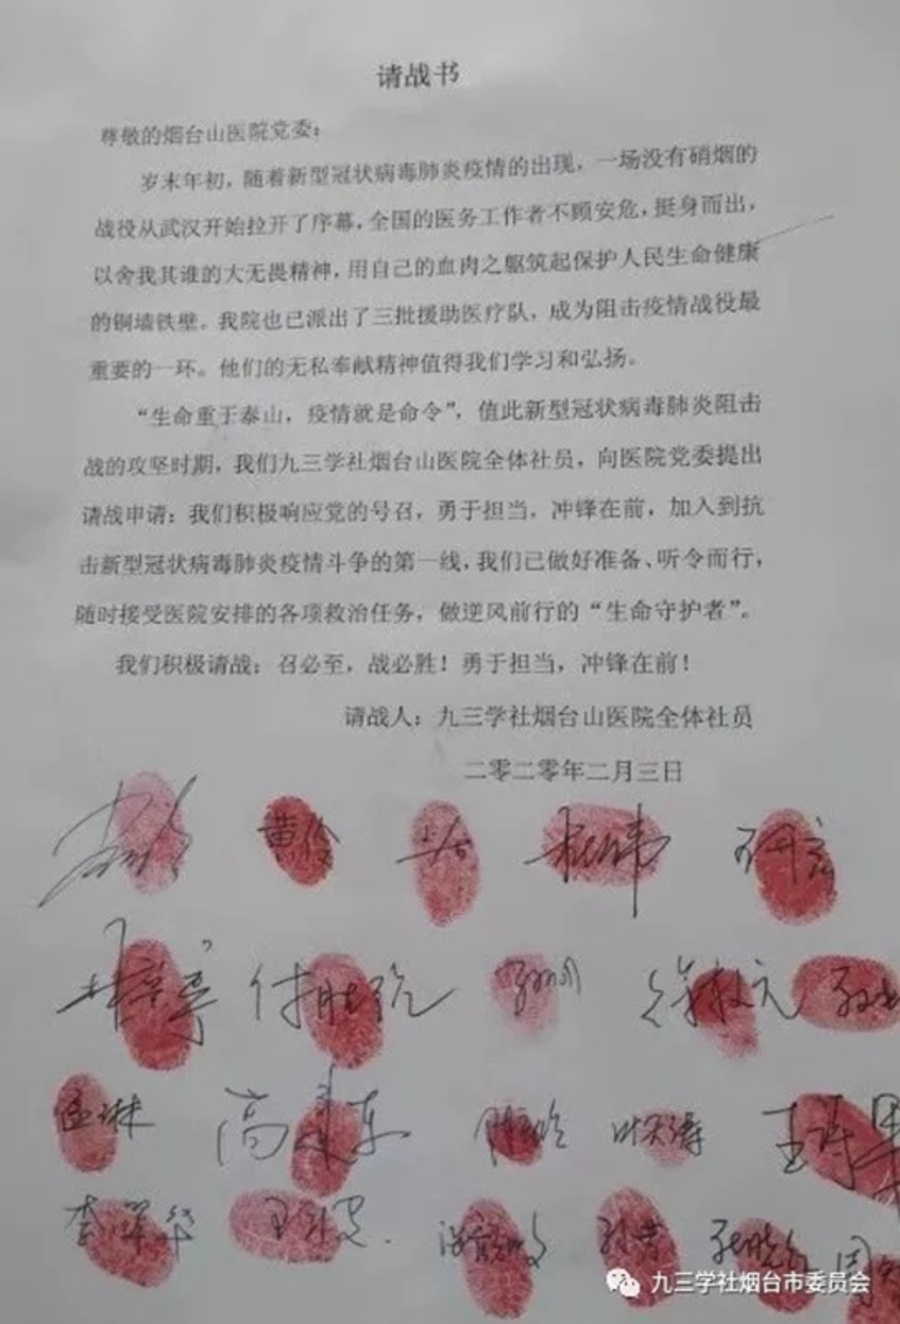 请战书
尊敬的烟台山医院党委：
岁末年初，随着新型冠状病毒肺炎疫情的出现，一场没有硝烟的
战役从武汉开始拉开了序幕，全国的医务工作者不顾安危，挺身而出，
以舍我其谁的大无畏精神，用自己的血肉之躯筑起保护人民生命健康
的铜墙铁壁。我院也已派出了三批援助医疗队，成为阻击疫情战役最
重要的一环。他们的无私奉献精神值得我们学习和弘扬。
“生命重于泰山，疫情就是命令”，值此新型冠状病毒肺炎阻击
战的攻坚时期，我们九三学社烟台山医院全体社员，向医院党委提出
请战申请：我们积极响应党的号召，勇于担当，冲锋在前，加入到抗
击新型冠状病毒肺炎疫情斗争的第一线，我们已做好准备、听令而行，
随时接受医院安排的各项救治任务，做逆风前行的“生命守护者”。
我们积极请战：召必至，战必胜！勇于担当，冲锋在前！
请战人：九三学社烟台山医院全体社员
二零二零年二月三日
黄伶
孟琳 高建东
九三学社烟台市委员会